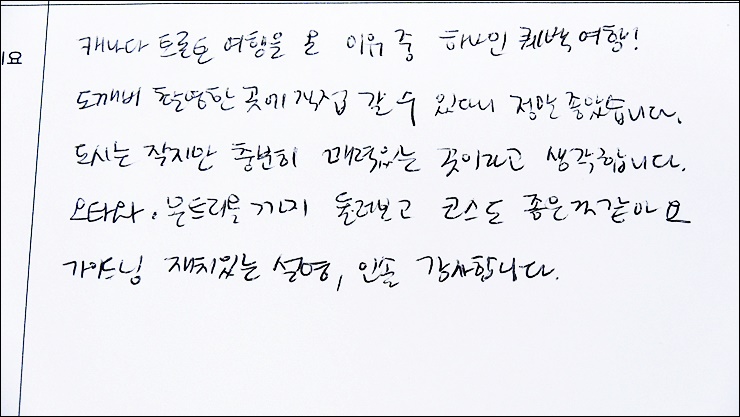 기요
캐나다 토론토 여행을 온 이유 중 하나인 퀘벡여행!
도깨비 촬영한 곳에 직접 갈 수 있다니 정말 좋았습니다.
도시는 작지만 충분히 매력있는 곳이라고 생각합니다.
오타와. 몬트리올 까지 둘러보고 코스도 좋은것같아요
가이드님 재치있는 설명, 인솔 감사합니다.